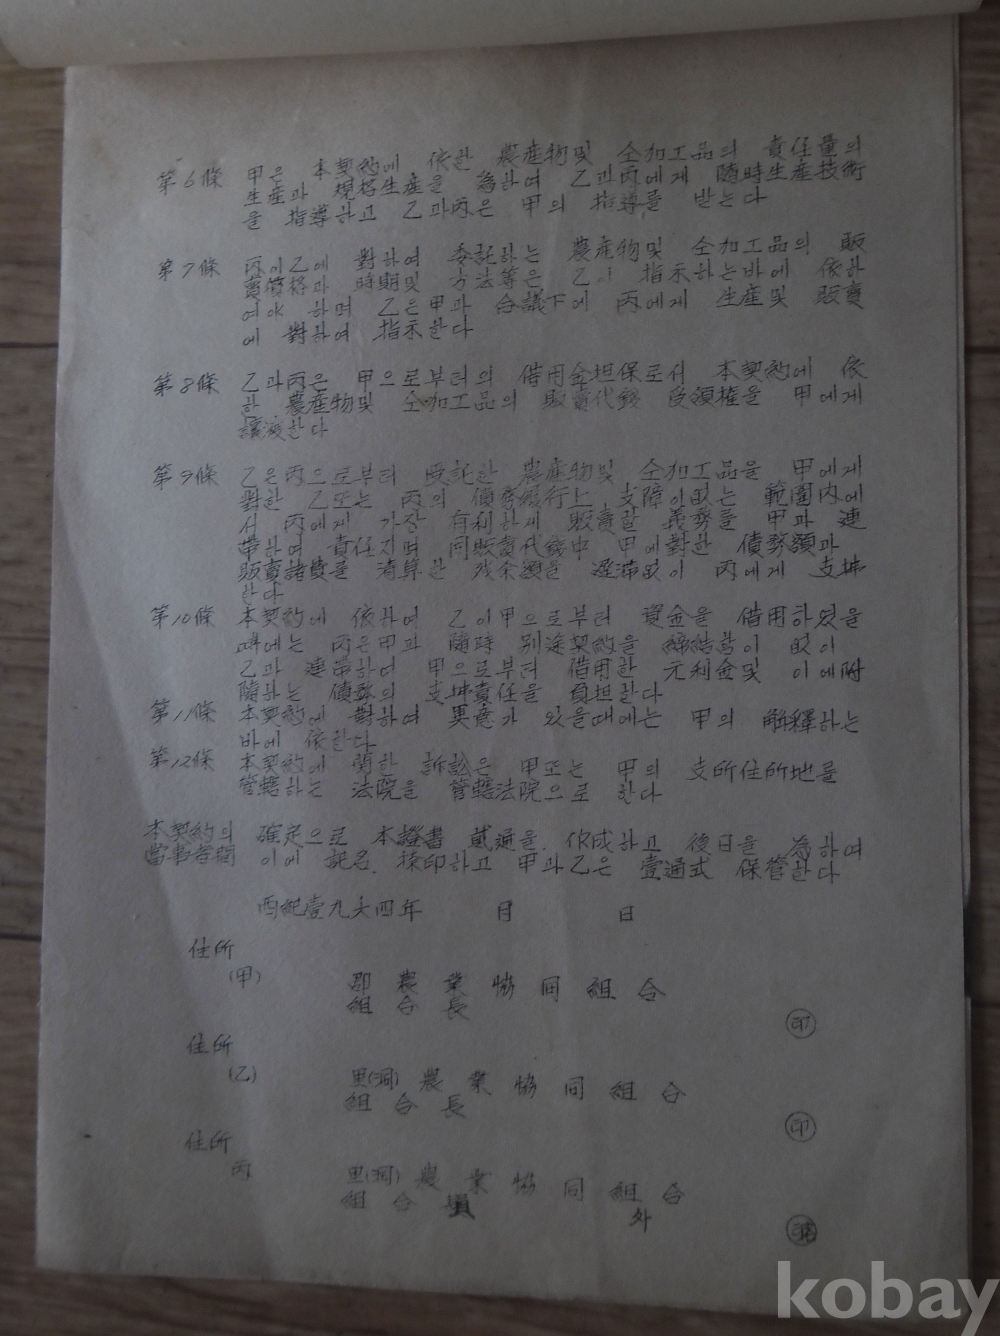 第6條 甲은 本契約에 依한 農産物및 仝加工品의 責任量의
生産과 規格生産을 為하여 乙과丙에게 隨時生産技術
을 指導하고 乙과丙은 甲의 指導를 받는다
第7條 丙이乙에 對하여 委託하는 農産物및 仝加工品의 販
賣價格과 時期및 方法等은 乙이 指示하는바에 依하
여야 하며 乙은甲과 合議下에 丙에게 生産및 販賣
에 對하여 指示한다
第8條 乙과丙은 甲으로부터의 借用金担保로서 本契約에 依
한 農産物및 仝加工品의 販賣代錢 受領権을 甲에게
讓渡한다
第9條 乙은丙으로부터 受託한 農産物및 仝加工品을 甲에게
對한 乙또는 丙의 債務履行上 支障이없는 範圍内에
서 丙에게 가장 有利하게 販賣할 義務를 甲과 連
帶하여 責任지며 同販賣代錢中 甲에對한 債務額과
販賣諸費를 清算한 残余額을 遅滞없이 丙에게 支拂
한다
第10條 本契約에 依하여 乙이甲으로부터 資金을 借用하였을
때에는 丙은甲과 隨時 別途契約을 締結함이 없이
乙과 連帯하여 甲으로부터 借用한 元利金및 이에附
隨하는 債務의 支拂責任을 負担한다
第11條 本契約에 對하여 異意가 있을때에는 甲의 解釋하는
바에 依한다
第12條 本契約에 関한 訴訟은 甲또는 甲의 支所住所地를
管轄하는 法院을 管轄法院으로 한다
本契約의 確定으로 本證書 貳通을 作成하고 後日을 為하여
當事者間 이에 記名 捺印하고 甲과乙은 壹通式 保管한다
西紀壹九六四年 月 日
住所
(甲) 郡農業協同組合
組合長 印
住所
(乙) 里(洞)農業協同組合
組合長 印
住所
丙 里(洞)農業協同組合
組合員 外
kobay